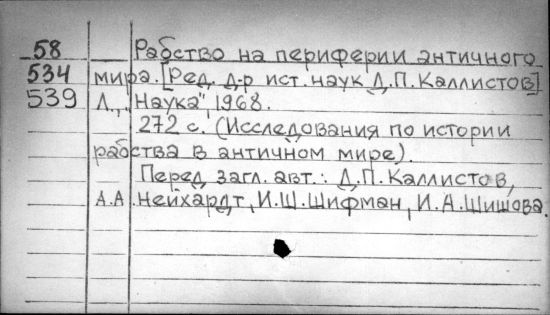 58 Рабство на периферии античного
534 мира. [Ред. д-р ист. наук Д.П. Каллистов]
539 Л., "Наука", 1968.
272 с. (Исследования по истории
рабства в античном мире).
Перед загл. авт.: Д.П. Каллистов,
А.А. Нейхардт, И.Ш. Шифман, И.А. Шишова.